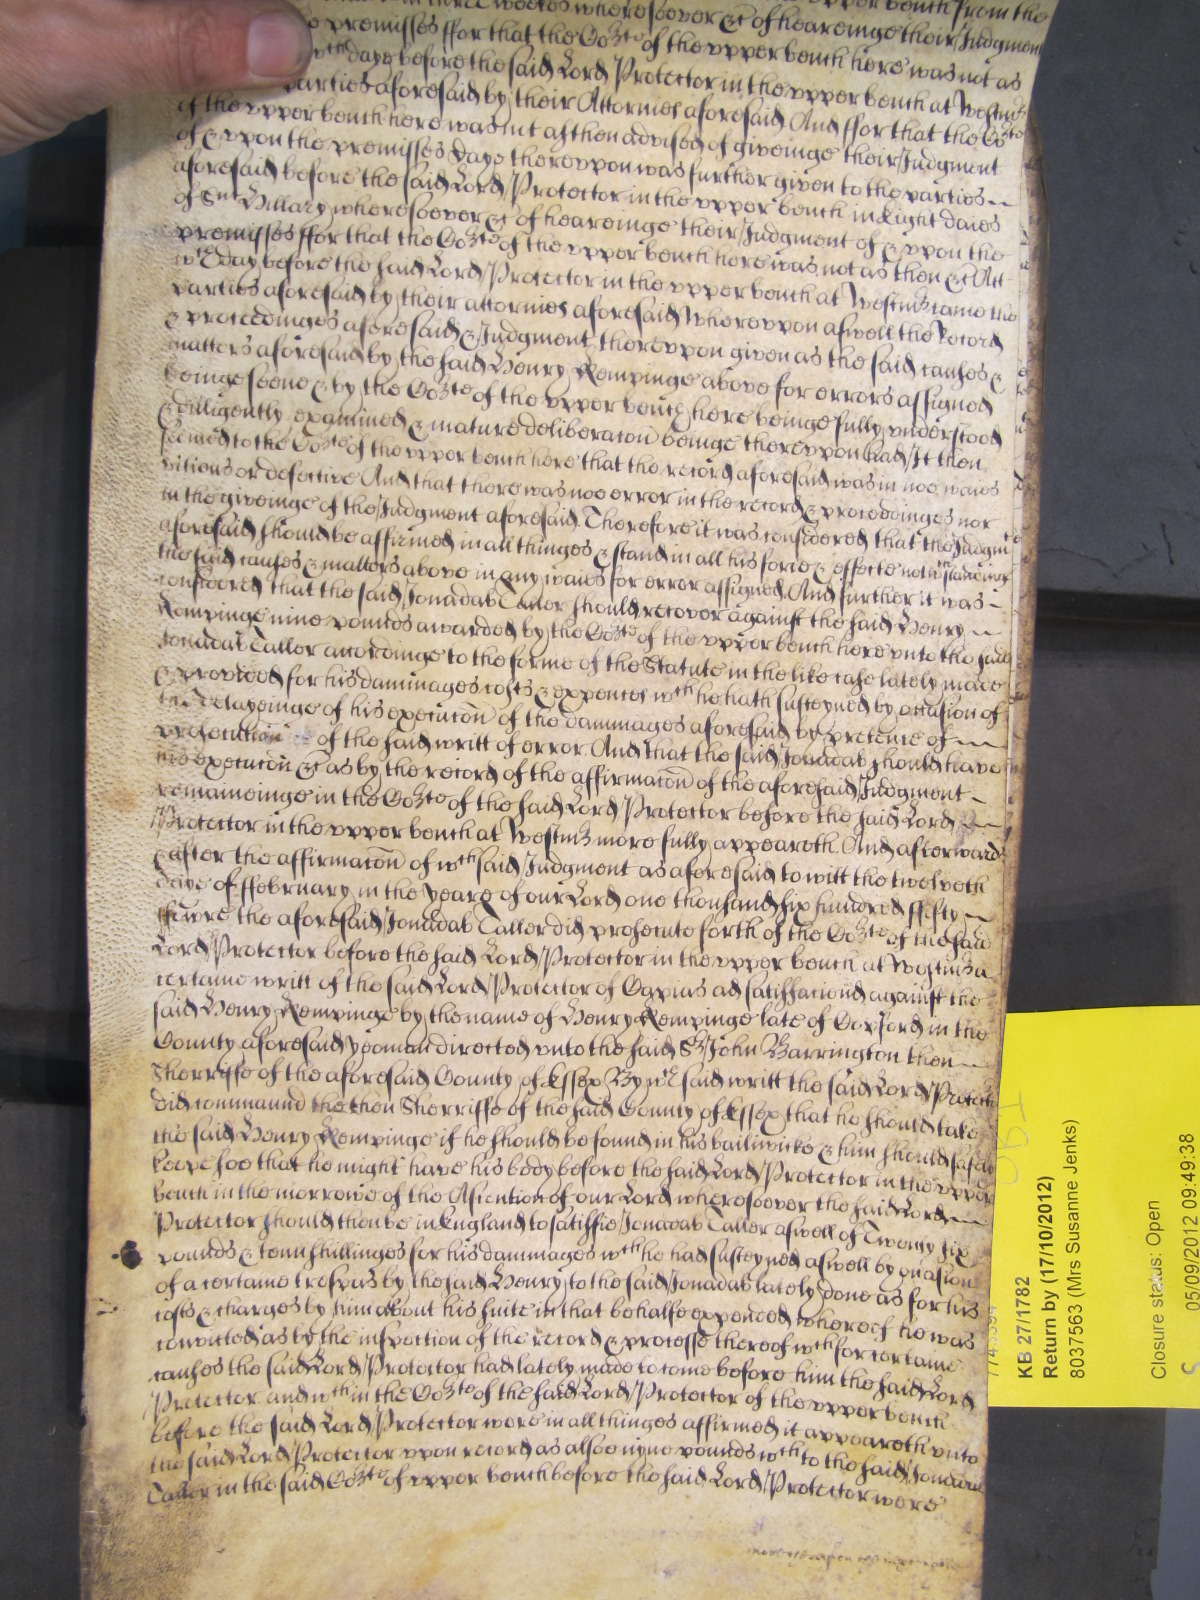 three weekes wheresoever &c of heareinge their Judgment
premisses ffor that the Co:te of the upper bench here was not as
daye before the said Lord Protector in the upper bench at Westm
parties aforesaid by their Attornies aforesaid And ffor that the Co:te
of the upper bench here was not as then advised of giveinge their Judgment
of & upon the premisses daye thereuppon was further given to the parties
aforesaid before the said Lord Protector in the upper bench in Eight daies
of Snt Hillary wheresoever &c of heareinge their Judgment of & uppon the
premisses ffor that the Co:te of the upper bench here was not as then &c Att
wch day before the said Lord Protector in the upper bench at Westm came the
parties aforesaid by their attornies aforesaid Whereuppon aswell the Record
& proceedinges aforesaid & Judgment thereuppon given as the said causes &
matters aforesaid by the said Henry Kempinge above for errors assigned
beinge seene & by the Co:te of the upper bench here beinge fully understood
& diligently examined & mature deliberacon beinge thereuppon had It then
seemed to the Co:te of the upper bench here that the record aforesaid was in noe waies
vitious or defective And that there was noe error in the record & proceedinges nor
in the giveinge of the Judgment aforesaid. Therefore it was considered that the Judgmt
aforesaid should be affirmed in all thinges & stand in all his force & effecte notwthstandinge
the said causes & matters above in any waies for error assigned And further it was
considered that the said Jonadab Caller should recover against the said Henry
Kempinge nine pounds awarded by the Co:te of the upper bench here unto the said
Jonadab Caller accordinge to the forme of the Statute in the like case lately made
& provided for his dammages costs & expences wch he hath susteyned by occasion of
the delayeinge of his execucon of the dammages aforesaid by pretence of
prosecucon of the said writt of error. And that the said Jonadab should have
his execucon &c as by the record of the affirmacon of the aforesaid Judgment
remaineinge in the Co:te of the said Lord Protector before the said Lord
Protector in the upper bench at Westm more fully appeareth. And afterwards
& after the affirmacon of wth said Judgment as aforesaid to witt the twelveth
daye of ffebruary in the yeare of our Lord one thousand six hundred ffifty
ffowre the aforesaid Jonadab Caller did prosecute forth of the Co:te of the said
Lord Protector before the said Lord Protector in the upper bench at Westm a
certaine writt of the said Lord Protector of Capias ad satisfaciend against the
said Henry Kempinge by the name of Henry Kempinge late of in the
County aforesaid yeoman directed unto the said Sr John Barrington then
Sherriffe of the aforesaid County of Essex By wch said writt the said Lord Protector
did command the then Sherriffe of the said County of Essex that he should take
the said Henry Kempinge if he should be found in his bailiwicke & him should safely
keepe soe that he might have his body before the said Lord Protector in the upper
bench in the morrowe of the Ascention of our Lord wheresoever the said Lord
Protector should then be in England to satisfie Jonadab Caller aswell of Twenty six
pounds & tenn shillinges for his dammages wch he had susteyned aswell by occasion
of a certaine trespas by the said Henry to the said Jonadab lately done as for his
costs & charges by him about his suite in that behalfe expended whereof he was
convicted as by the inspection of the record & processe thereof wch for certaine
causes the said Lord Protector had lately made to come before him the said Lord
Protector and wch in the Co:te of the said Lord Protector of the upper bench
before the said Lord Protector were in all thinges affirmed it appeareth unto
the said Lord Protector uppon record as alsoe nyne pounds wch to the said Jonadab
Caller in the said Co:te of upper bench before the said Lord Protector were
KB 27/1782
Return by (17/10/2012)
8037563 (Mrs Susanne Jenks)
Closure status: Open
05/09/2012 09:49:38